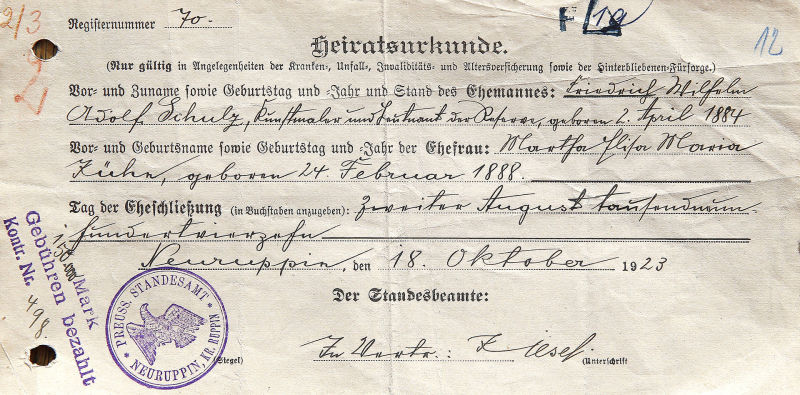 2/3
F 19
12
Registernummer 70.
Heiratsurkunde.
(Nur gültig in Angelegenheiten der Kranken-, Unfall-, Invaliditäts- und Altersversicherung sowie der Hinterbliebenen-Fürsorge.)
Vor- und Zuname sowie Geburtstag und -Jahr und Stand des Ehemannes: Friedrich Wilhelm
Adolf Schulz, Kunstmaler und Leutnant der Reserve, geboren 2. April 1884
Vor- und Geburtsname sowie Geburtstag und -Jahr der Ehefrau: Martha Elisa Maria
Kühn, geboren 24. Februar 1888.
Tag der Eheschließung (in Buchstaben anzugeben): Zweiter August tausendneun-
hundertvierzehn
Neuruppin, den 18. Oktober 1923
Der Standesbeamte:
In Vertr.:
(Siegel)
(Unterschrift
PREUSS STANDESAMT
NEURUPPIN, KR. RUPPIN
Mark
Gebühren bezahlt
Kontr. Nr. 498.